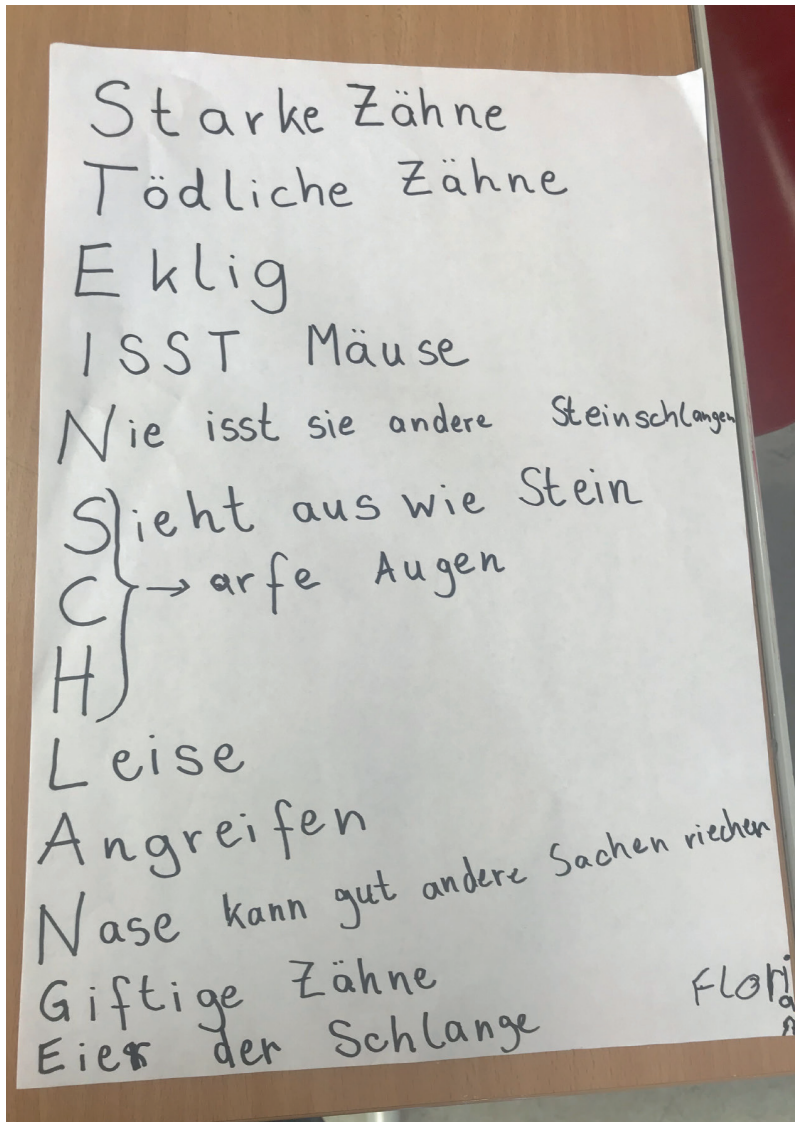 Starke Zähne
Tödliche Zähne
Eklig
ISST Mäuse
Nie isst sie andere Steinschlangen
Sieht aus wie Stein
C → arfe Augen
H
Leise
Angreifen
Nase kann gut andere Sachen riechen
Giftige Zähne
Eier der Schlange
Florian